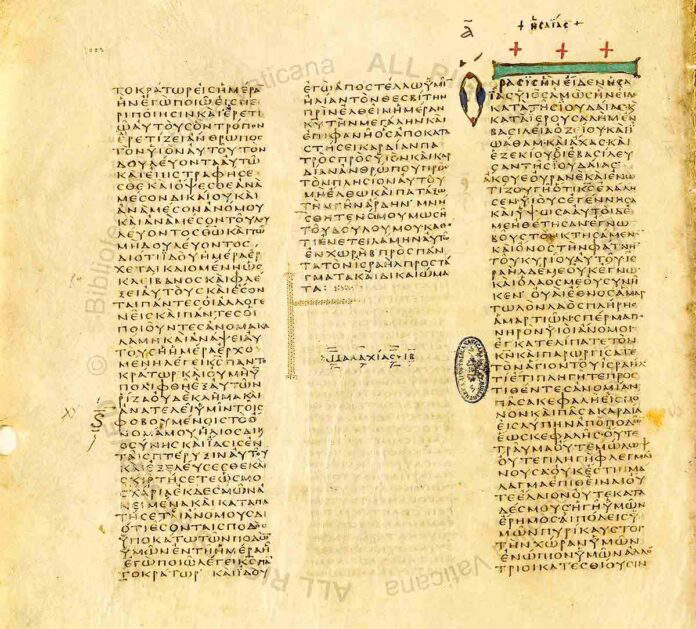 ΤΟΚΡΑΤΩΡΕΙΣΗΜΕΡΑ
ΗΝΕΓΩΠΟΙΩΕΙΣΠΕ
ΡΙΠΟΙΗΣΙΝΚΑΙΕΡΕΤΙ
ΩΑΥΤΟΥΣΟΝΤΡΟΠΟΝ
ΕΡΕΤΙΖΕΙΑΝΘΡΩΠΟΣ
ΤΟΝΥΙΟΝΑΥΤΟΥΤΟΝ
ΔΟΥΛΕΥΟΝΤΑΑΥΤΩ
ΚΑΙΕΠΙΣΤΡΑΦΗΣΕ
ΣΘΕΚΑΙΟΨΕΣΘΕΑΝΑ
ΜΕΣΟΝΔΙΚΑΙΟΥΚΑΙ
ΑΝΑΜΕΣΟΝΑΝΟΜΟΥ
ΚΑΙΑΝΑΜΕΣΟΝΤΟΥΔΟΥ
ΛΕΥΟΝΤΟΣΘΩΚΑΙΤΟΥ
ΜΗΔΟΥΛΕΥΟΝΤΟΣ
ΔΙΟΤΙΙΔΟΥΗΜΕΡΑΕΡ
ΧΕΤΑΙΚΑΙΟΜΕΝΗΩΣ
ΚΛΕΙΒΑΝΟΣΚΑΙΦΛΕ
ΞΕΙΑΥΤΟΥΣΚΑΙΕΣΟΝ
ΤΑΙΠΑΝΤΕΣΟΙΑΛΛΟΓΕ
ΝΕΙΣΚΑΙΠΑΝΤΕΣΟΙ
ΠΟΙΟΥΝΤΕΣΑΝΟΜΑΚΑ
ΛΑΜΗΚΑΙΑΝΑΨΕΙΑΥ
ΤΟΥΣΗΗΜΕΡΑΕΡΧΟ
ΜΕΝΗΛΕΓΕΙΚΣΠΑΝΤΟ
ΚΡΑΤΩΡΚΑΙΟΥΜΗΥ
ΠΟΛΙΦΘΗΕΞΑΥΤΩΝ
ΡΙΖΑΟΥΔΕΚΛΗΜΑΚΑΙ
ΑΝΑΤΕΛΕΙΥΜΙΝΤΟΙΣ
ΦΟΒΟΥΜΕΝΟΙΣΤΟΟ
ΝΟΜΑΜΟΥΗΛΙΟΣΔΙΚΑΙ
ΟΣΥΝΗΣΚΑΙΙΑΣΙΣΕΝ
ΤΑΙΣΠΤΕΡΥΞΙΝΑΥΤΟΥ
ΚΑΙΕΞΕΛΕΥΣΕΣΘΕΚΑΙ
ΣΚΙΡΤΗΣΕΤΕΩΣΜΟ
ΣΧΑΡΙΑΕΚΔΕΣΜΩΝΑ
ΝΕΙΜΕΝΑΚΑΙΚΑΤΑΠΑ
ΤΗΣΕΤΑΙΑΝΟΜΟΥΣΔΙ
ΟΤΙΕΣΟΝΤΑΙΣΠΟΔΟΣ
ΥΠΟΚΑΤΩΤΩΝΠΟΔΩ
ΥΜΩΝΕΝΤΗΗΜΕΡΑΗ
ΕΓΩΠΟΙΩΛΕΓΕΙΚΣΠΑ
ΤΟΚΡΑΤΩΡ ΚΑΙΙΔΟΥ
ΕΓΩΑΠΟΣΤΕΛΛΩΥΜΙ
ΗΛΙΑΝΤΟΝΘΕΣΒΙΤΗΝ
ΠΡΙΝΕΛΘΕΙΝΗΜΕΡΑΝ
ΚΥΤΗΝΜΕΓΑΛΗΝΚΑΙ
ΕΠΙΦΑΝΗΟΣΑΠΟΚΑΤΑ
ΣΤΗΣΕΙΚΑΡΔΙΑΝΠΑ
ΤΡΟΣΠΡΟΣΥΙΟΝΚΑΙΚΑΡ
ΔΙΑΝΑΝΘΡΩΠΟΥΠΡΟΣ
ΤΟΝΠΛΗΣΙΟΝΑΥΤΟΥ
ΜΗΕΛΘΩΚΑΙΠΑΤΑΞΩ
ΤΗΝΓΗΝΑΡΔΗΝ ΜΝΗ
ΣΘΗΤΕΝΟΜΟΥΜΩΣΗ
ΤΟΥΔΟΥΛΟΥΜΟΥΚΑΘΟ
ΤΙΕΝΕΤΕΙΛΑΜΗΝΑΥΤΩ
ΕΝΧΩΡΗΒΠΡΟΣΠΑΝ
ΤΑΤΟΝΙΣΡΑΗΛΠΡΟΣΤΑ
ΓΜΑΤΑΚΑΙΔΙΚΑΙΩΜΑ
ΤΑ
ΜΑΛΑΧΙΑΣ ΙΒ
Α
+ ΗΣΑΙΑΣ +
ΟΡΑΣΙΣΗΝΕΙΔΕΝΗΣΑ
ΙΑΣΥΙΟΣΑΜΩΣΗΝΕΙΔΕ
ΚΑΤΑΤΗΣΙΟΥΔΑΙΑΣΚΑΙ
ΚΑΤΑΙΕΡΟΥΣΑΛΗΜΕΝ
ΒΑΣΙΛΕΙΑΟΖΕΙΟΥΚΑΙΙ
ΩΑΘΑΜΚΑΙΑΧΑΖΚΑΙ
ΕΖΕΚΙΟΥΟΙΕΒΑΣΙΛΕΥ
ΣΑΝΤΗΣΙΟΥΔΑΙΑΣ
ΑΚΟΥΕΟΥΡΑΝΕΚΑΙΕΝΩ
ΤΙΖΟΥΓΗΟΤΙΚΣΕΛΑΛΗ
ΣΕΝΥΙΟΥΣΕΓΕΝΝΗΣΑ
ΚΑΙΥΨΩΣΑΑΥΤΟΙΔΕ
ΜΕΗΘΕΤΗΣΑΝΕΓΝΩ
ΒΟΥΣΤΟΝΚΤΗΣΑΜΕΝΟ
ΚΑΙΟΝΟΣΤΗΝΦΑΤΝΗΝ
ΤΟΥΚΥΡΙΟΥΑΥΤΟΥΙΣ
ΡΑΗΛΔΕΜΕΟΥΚΕΓΝΩ
ΚΑΙΟΛΑΟΣΜΕΟΥΣΥΝΗ
ΚΕΝ ΟΥΑΙΕΘΝΟΣΑΜΑΡ
ΤΩΛΟΝΛΑΟΣΠΛΗΡΗΣ
ΑΜΑΡΤΙΩΝΣΠΕΡΜΑΠΟ
ΝΗΡΟΝΥΙΟΙΑΝΟΜΟΙ
ΕΓΚΑΤΕΛΙΠΑΤΕΤΟΝ
ΚΝΚΑΙΠΑΡΩΡΓΙΣΑΤΕ
ΤΟΝΑΓΙΟΝΤΟΥΙΣΡΑΗΛ
ΤΙΕΤΙΠΛΗΓΗΤΕΠΡΟΣ
ΤΙΘΕΝΤΕΣΑΝΟΜΙΑΝ
ΠΑΣΑΚΕΦΑΛΗΕΙΣΠΟ
ΝΟΝΚΑΙΠΑΣΑΚΑΡΔΙΑ
ΕΙΣΛΥΠΗΝΑΠΟΠΟΔΩ
ΕΩΣΚΕΦΑΛΗΣΟΥΤΕ
ΤΡΑΥΜΑΟΥΤΕΜΩΛΩΨ
ΟΥΤΕΠΛΗΓΗΦΛΕΓΜΑΙ
ΝΟΥΣΑΟΥΚΕΣΤΙΝΜΑ
ΛΑΓΜΑΕΠΙΘΕΙΝΑΙΟΥ
ΤΕΕΛΑΙΟΝΟΥΤΕΚΑΤΑ
ΔΕΣΜΟΥΣΗΓΗΥΜΩΝ
ΕΡΗΜΟΣΑΙΠΟΛΕΙΣΥ
ΜΩΝΠΥΡΙΚΑΥΣΤΟΙ
ΤΗΝΧΩΡΑΝΥΜΩΝ
ΕΝΩΠΙΟΝΥΜΩΝΑΛΛΟ
ΤΡΙΟΙΚΑΤΕΣΘΙΟΥΣΙΝ